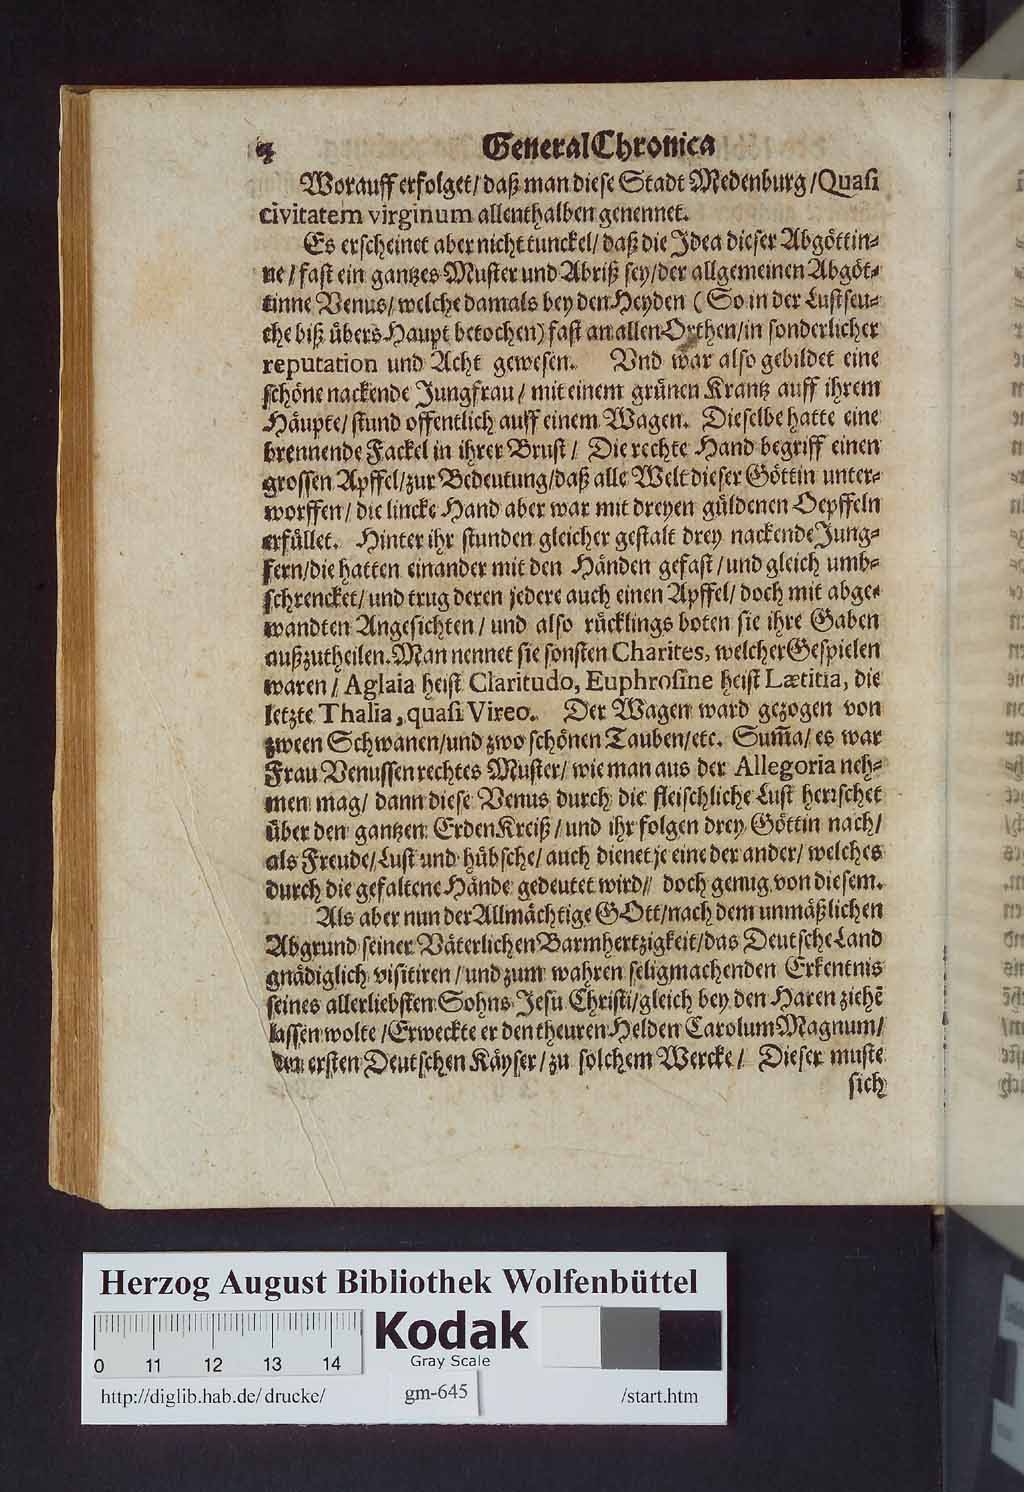 4 General Chronica
Worauff erfolget/ daß man diese Stadt Medenburg/ Quasi
civitatem virginum allenthalben genennet.
Es erscheinet aber nicht tunckel/ daß die Idea dieser Abgöttin-
ne/ fast ein gantzes Muster und Abriß sey/ der allgemeinen Abgöt-
tinne Venus/ welche damals bey den Heyden (So in der Lustseu-
che biß übers Haupt betochen) fast an allen Orthen/ in sonderlicher
reputation und Acht gewesen. Vnd war also gebildet eine
schöne nackende Jungfrau/ mit einem grünen Krantz auff ihrem
Häupte/ stund offentlich auff einem Wagen. Dieselbe hatte eine
brennende Fackel in ihrer Brust/ Die rechte Hand begriff einen
grossen Apffel/ zur Bedeutung/ daß alle Welt dieser Göttin unter-
worffen/ die lincke Hand aber war mit dreyen güldenen Oepffeln
erfüllet. Hinter ihr stunden gleicher gestalt drey nackende Jung-
fern/ die hatten einander mit den Händen gefast/ und gleich umb-
schrencket/ und trug deren jedere auch einen Apffel/ doch mit abge-
wandten Angesichten/ und also rücklings boten sie ihre Gaben
außzutheilen. Man nennet sie sonsten Charites, welcher Gespielen
waren/ Aglaia heist Claritudo, Euphrosine heist Lætitia, die
letzte Thalia, quasi Vireo. Der Wagen ward gezogen von
zween Schwanen/ und zwo schönen Tauben/ etc. Sum̄a/ es war
Frau Venussen rechtes Muster/ wie man aus der Allegoria neh-
men mag/ dann diese Venus durch die fleischliche Lust herrschet
über den gantzen ErdenKreiß/ und ihr folgen drey Göttin nach/
als Freude/ Lust und hübsche/ auch dienet je eine der ander/ welches
durch die gefaltene Hände gedeutet wird// doch genug von diesem.
Als aber nun der Allmächtige GOtt/ nach dem unmäßlichen
Abgrund seiner Väterlichen Barmhertzigkeit/ das Deutsche Land
gnädiglich visitiren/ und zum wahren seligmachenden Erkentnis
seines allerliebsten Sohns Jesu Christi/ gleich bey den Haren ziehē
lassen wolte/ Erweckte er den theuren Helden Carolum Magnum/
den ersten Deutschen Käyser/ zu solchem Wercke/ Dieser muste
sich
Herzog August Bibliothek Wolfenbüttel
Kodak
Gray Scale
0 11 12 13 14
http://diglib.hab.de/drucke/ gm-645 /start.htm